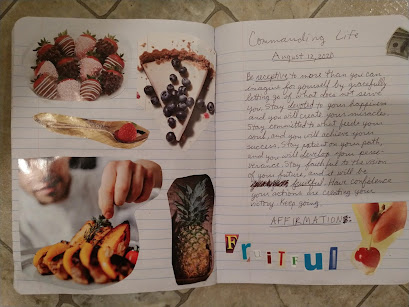 Commanding Life
August 12, 2020
Be receptive to more than you can
imagine for yourself by gracefully
letting go of what does not serve
you. Stay devoted to your happiness
and you will create your miracles.
Stay committed to what feeds your
soul, and you will achieve your
success. Stay patient on your path,
and you will develop your
renewal. Stay faithful to the vision
of your future, and it will be
fruitful. Have confidence
your actions are creating your
victory. Keep going.
AFFIRMATIONS:
FRUITFUL